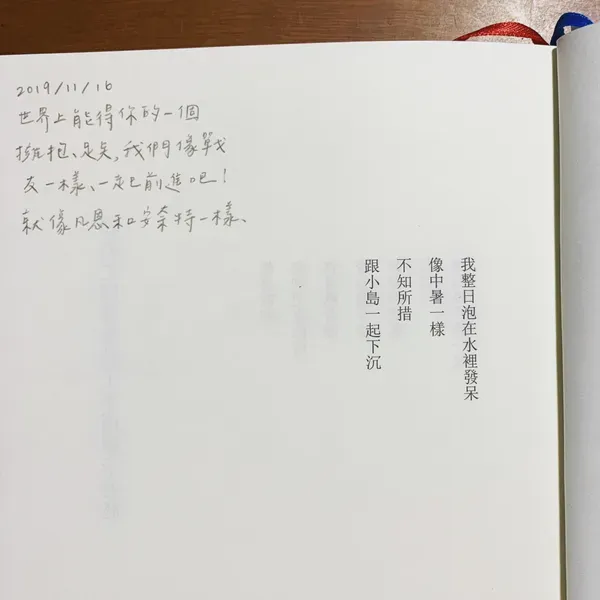 2019/11/16
世界上能得你的一個
擁抱、足矣,我們像戰
友一樣、一起前進吧!
就像凡恩和安奈特一樣、
我整日泡在水裡發呆
像中暑一樣
不知所措
跟小島一起下沉